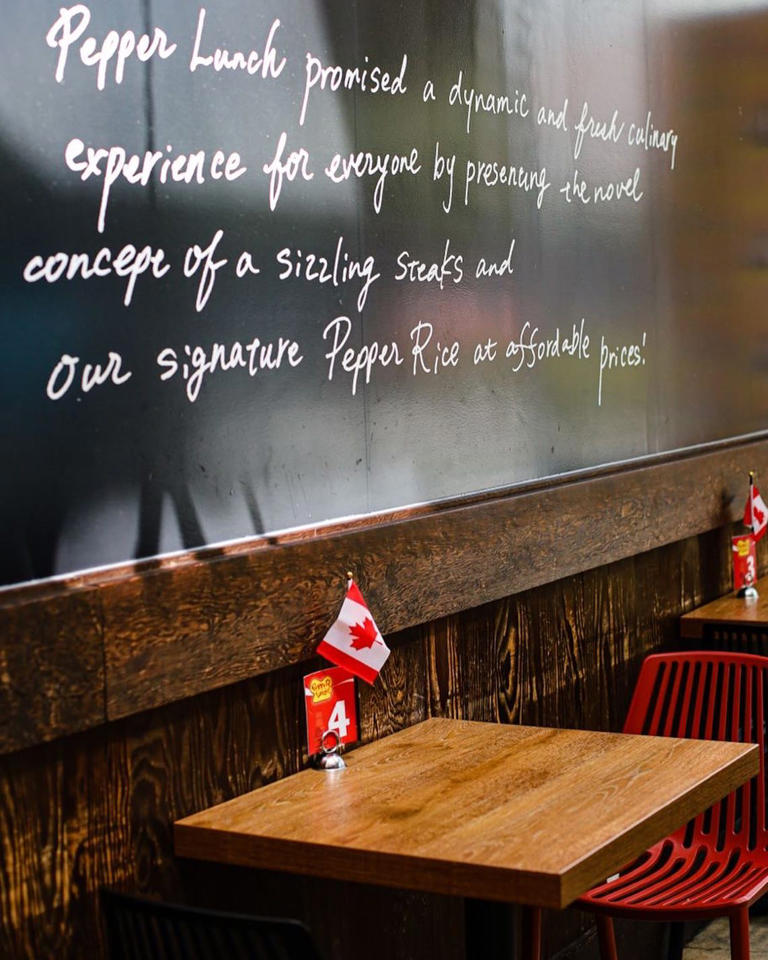 Pepper Lunch promised a dynamic and fresh culinary
experience for everyone by presenting the novel
concept of a sizzling steaks and
our signature Pepper Rice at affordable prices!
4
3